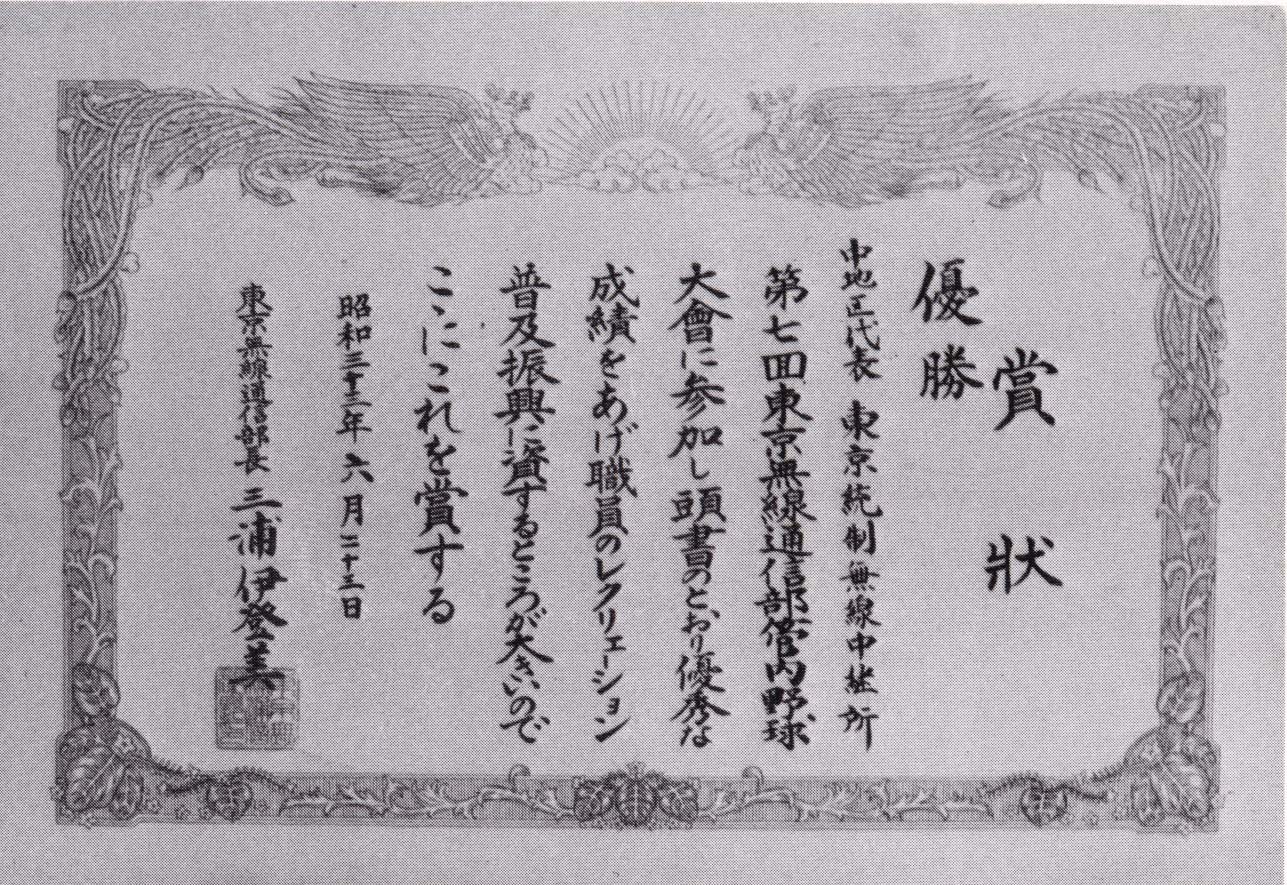 賞状
優勝
中地区代表 東京統制無線中継所
第七回東京無線通信部管内野球
大會に参加し頭書のとおり優秀な
成績をあげ職員のレクリェーション
普及振興に資するところが大きいので
ここにこれを賞する
昭和三十三年六月二十三日
東京無線通信部長 三浦伊登美